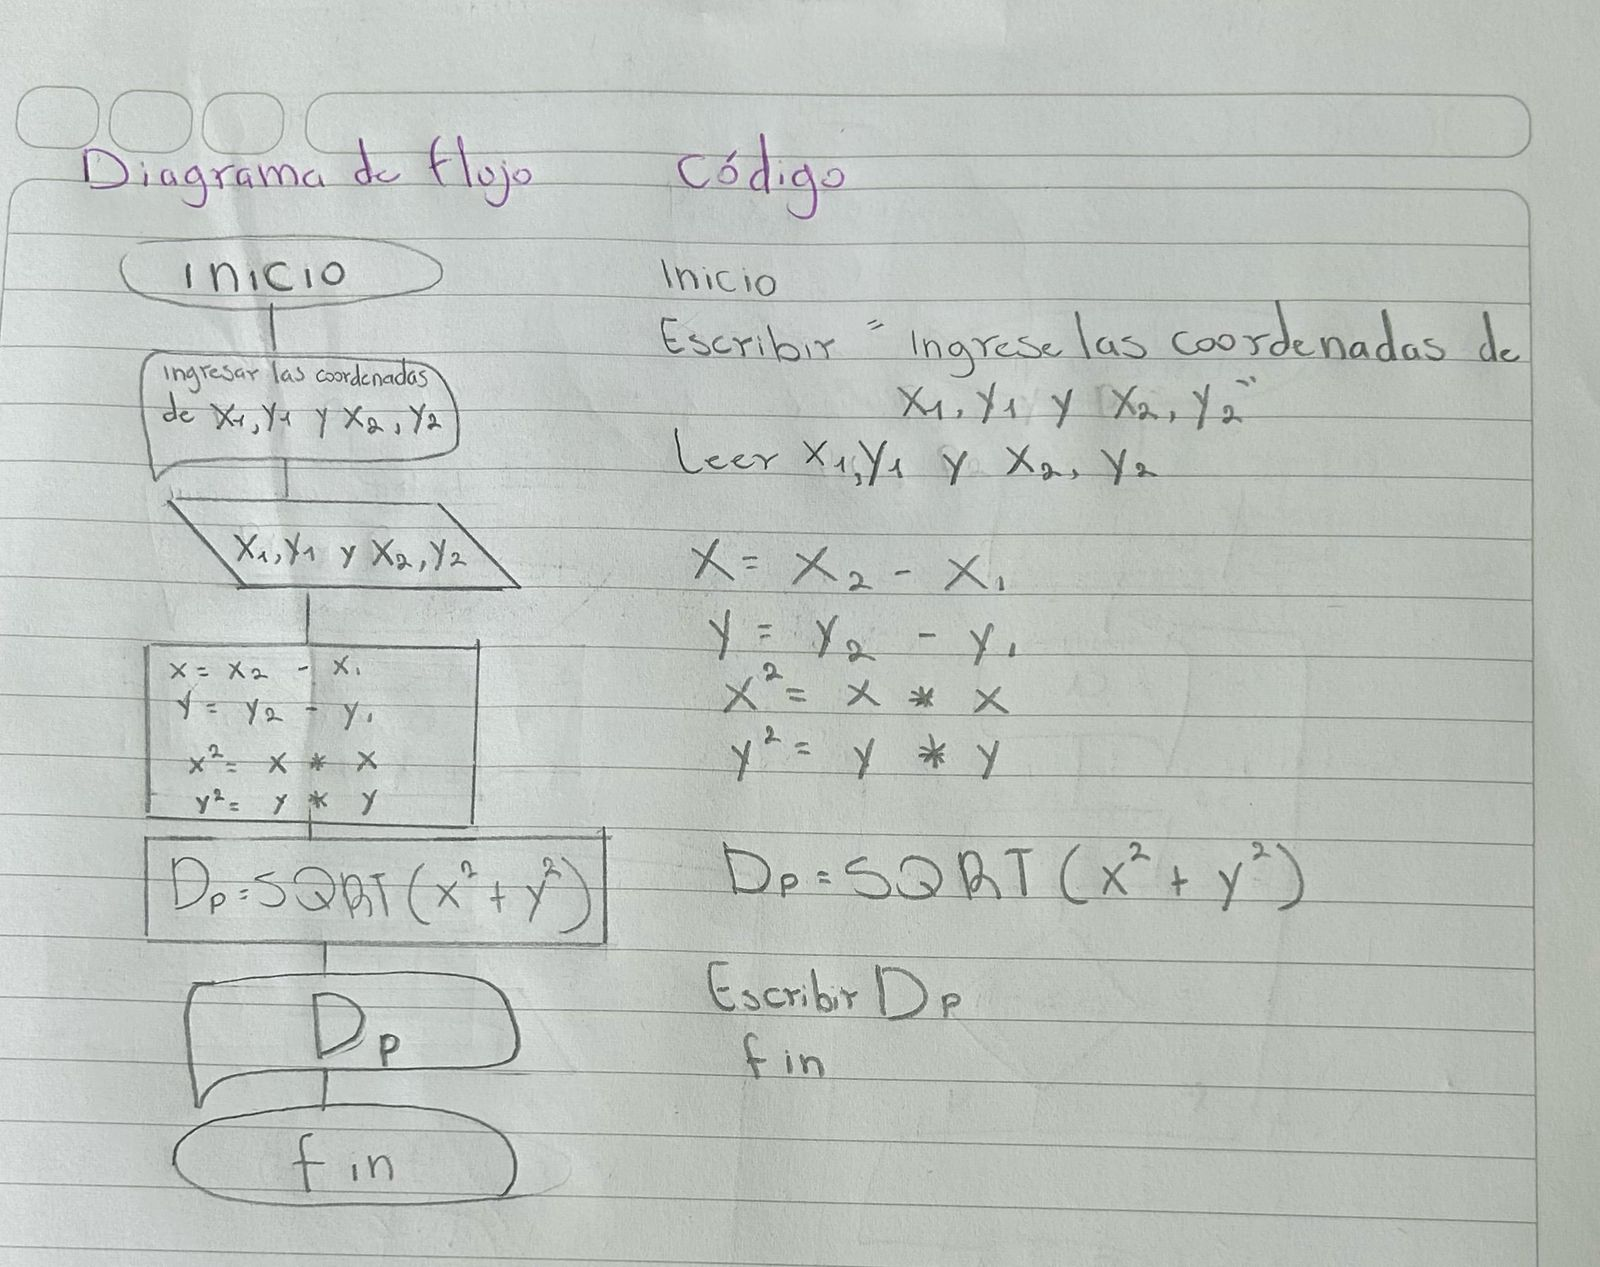 Diagrama de flujo
inicio
ingresar las coordenadas
de X1, Y1 y X2, Y2
X1, Y1 y X2, Y2
X = X2 - X1
Y = Y2 - Y1
X² = X * X
Y² = Y * Y
Dp = SQRT (X² + Y²)
Dp
fin
Código
Inicio
Escribir "Ingrese las coordenadas de
X1, Y1 y X2, Y2"
Leer X1, Y1 y X2, Y2
X = X2 - X1
Y = Y2 - Y1
X² = X * X
Y² = Y * Y
Dp = SQRT (X² + Y²)
Escribir Dp
fin